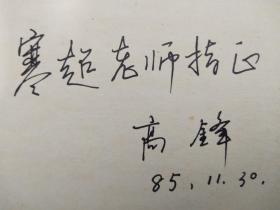 骞超老师指正
高锋
85.11.30.